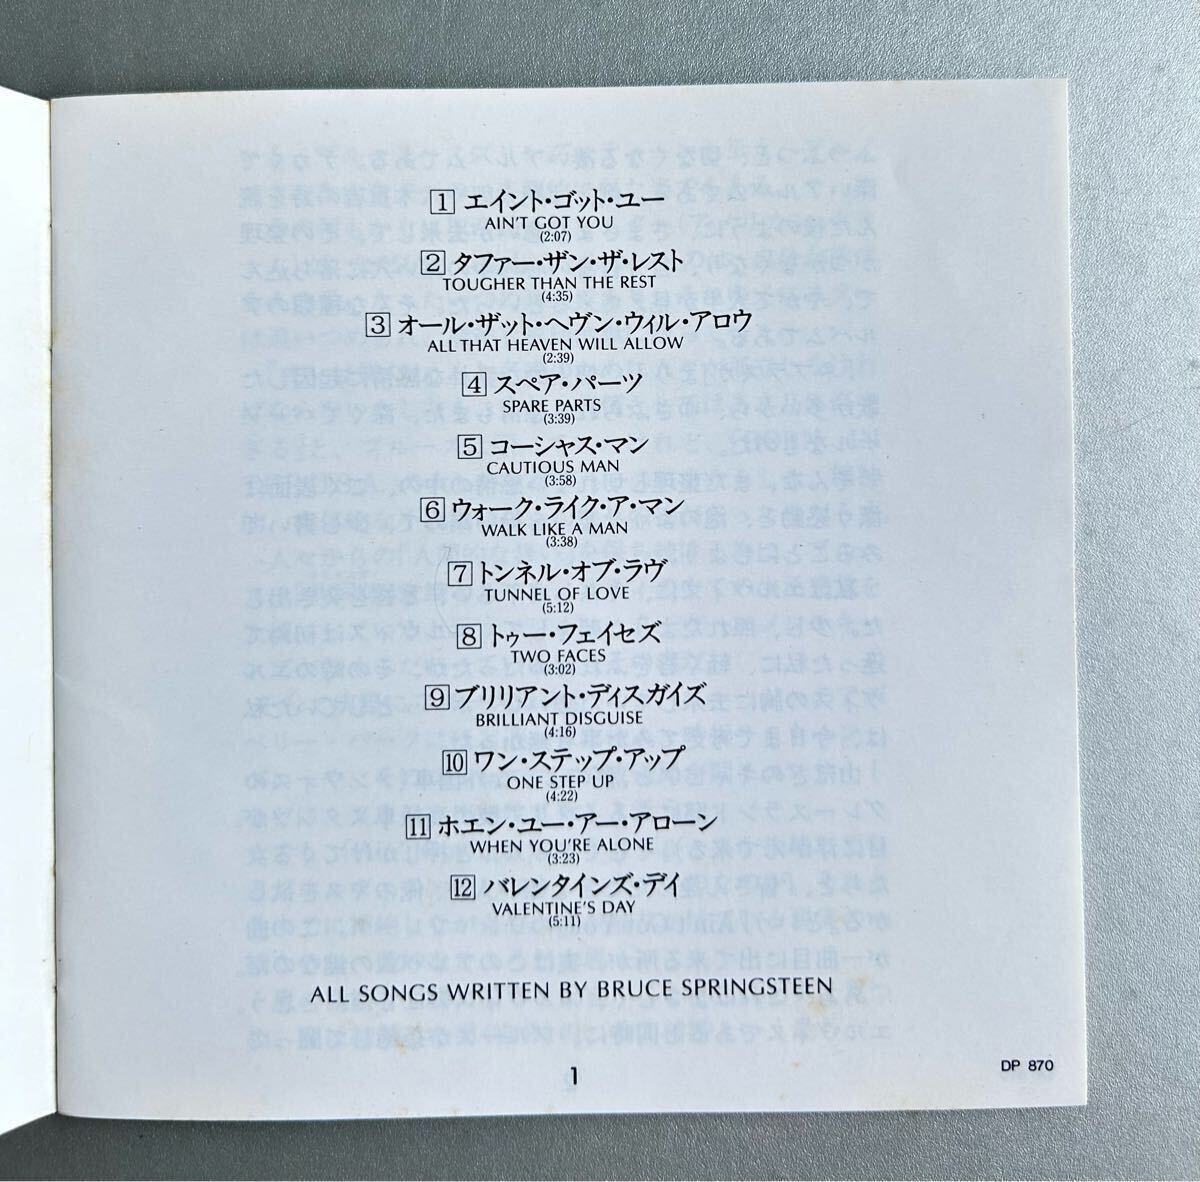 1 エイント・ゴット・ユー
AIN'T GOT YOU
(2:07)
2 タファー・ザン・ザ・レスト
TOUGHER THAN THE REST
(4:35)
3 オール・ザット・ヘヴン・ウィル・アロウ
ALL THAT HEAVEN WILL ALLOW
(2:39)
4 スペア・パーツ
SPARE PARTS
(3:39)
5 コーシャス・マン
CAUTIOUS MAN
(3:58)
6 ウォーク・ライク・ア・マン
WALK LIKE A MAN
(3:38)
7 トンネル・オブ・ラヴ
TUNNEL OF LOVE
(5:12)
8 トゥー・フェイセズ
TWO FACES
(3:02)
9 ブリリアント・ディスガイズ
BRILLIANT DISGUISE
(4:16)
10 ワン・ステップ・アップ
ONE STEP UP
(4:22)
11 ホエン・ユー・アー・アローン
WHEN YOU'RE ALONE
(3:23)
12 バレンタインズ・デイ
VALENTINE'S DAY
(5:11)
ALL SONGS WRITTEN BY BRUCE SPRINGSTEEN
1
DP 870